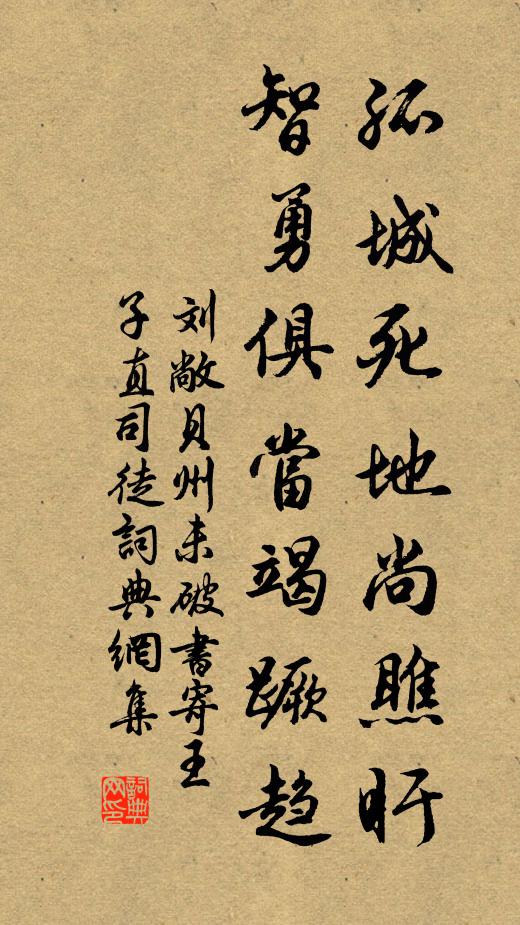 孤城死地尚瞧盱
智勇俱當竭蹶趋
刘敞貝州未破書寄王
子直司徒詞典網集
詞典
网印